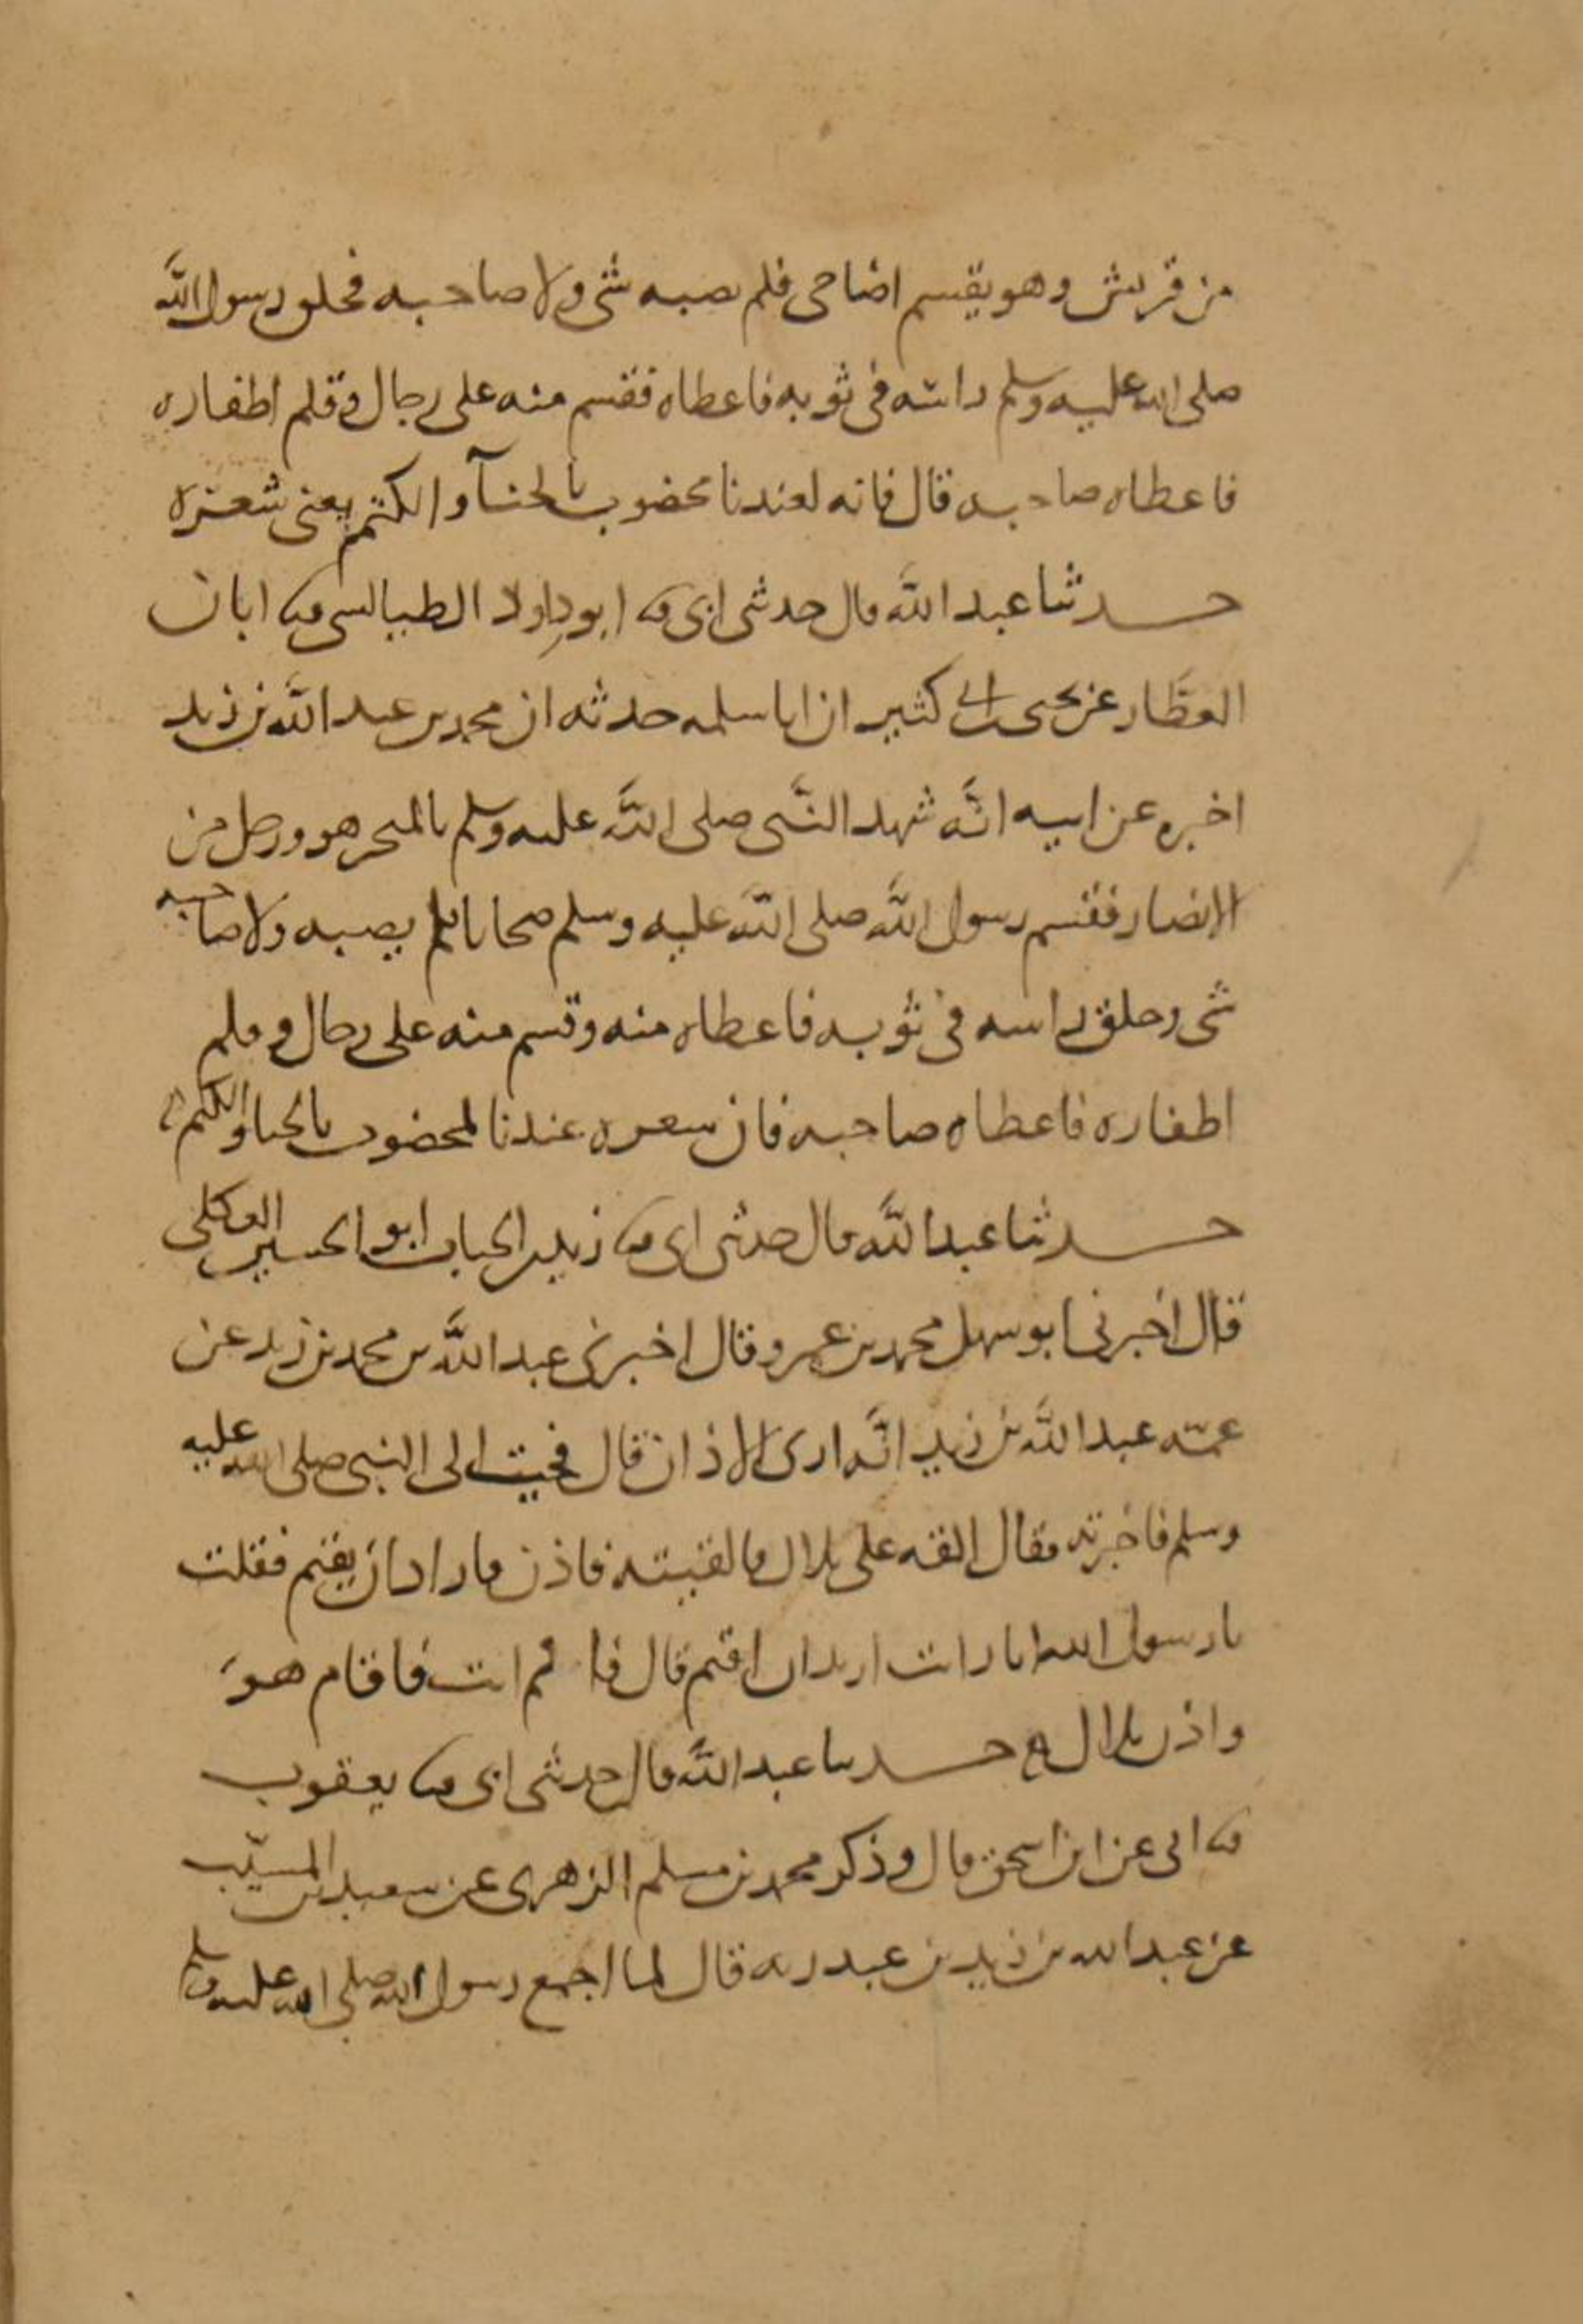 من قريش وهو يقسم اضاحى فلم يصبه شئ ولا صاحبه فحلق رسول الله
صلى الله عليه وسلم راسه فى ثوبه فاعطاه فقسم منه على رجال وقلم اظفاره
فاعطاه صاحبه قال فانه لعندنا مخضوب بالحناء والكتم يعنى شعره
حدثنا عبد الله قال حدثنى ابى ثنا ابو داود الطيالسى ثنا ابان
العطار عن يحيى بن ابى كثير ان ابا سلمه حدثه ان محمد بن عبد الله بن زيد
اخبره عن ابيه انه شهد النبى صلى الله عليه وسلم بالمنحر هو ورجل من
الانصار فقسم رسول الله صلى الله عليه وسلم ضحايا فلم يصبه ولا صاحبه
شئ وحلق راسه فى ثوبه فاعطاه منه وقسم منه على رجال وقلم
اظفاره فاعطاه صاحبه فان شعره عندنا لمخضوب بالحنا والكتم
حدثنا عبد الله قال حدثنى ابى ثنا زيد بن الحباب ابو الحسين العكلى
قال اخبرنى ابو سهل محمد بن عمرو قال اخبرنى عبد الله بن محمد بن زيد عن
عمه عبد الله بن زيد انه ارى الاذان قال فجيت الى النبى صلى الله عليه
وسلم فاخبرته فقال القه على بلال فالقيته فاذن فاراد ان يقيم فقلت
يا رسول الله انا رايت اريد ان اقيم قال فاقم انت فاقام هو
واذن بلال حدثنا عبد الله قال حدثنى ابى ثنا يعقوب
ثنا ابى عن ابن اسحق قال وذكر محمد بن مسلم الزهرى عن سعيد بن المسيب
عن عبد الله بن زيد بن عبد ربه قال لما اجمع رسول الله صلى الله عليه وسلم